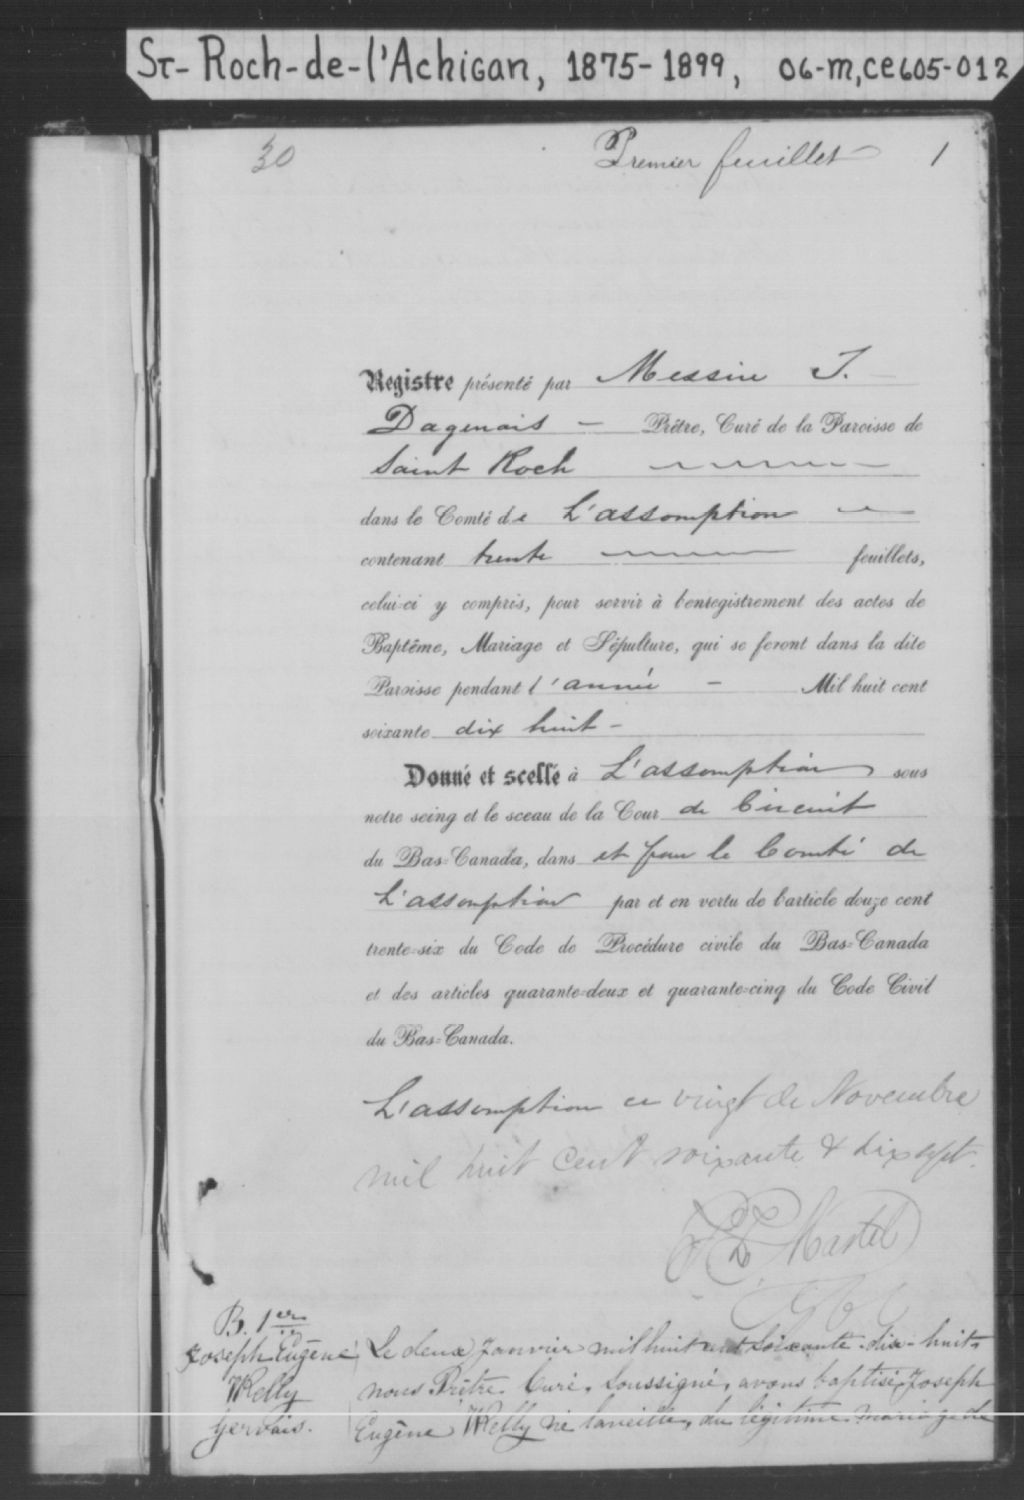 St-Roch-de-l'Achigan, 1875-1899, 06-M,CE605-012
30
Premier feuillet 1
Registre présenté par Messire J.
Dagenais — Prêtre, Curé de la Paroisse de
Saint Roch
dans le Comté de L'assomption
contenant trente feuillets,
celui-ci y compris, pour servir à l'enregistrement des actes de
Baptême, Mariage et Sépulture, qui se feront dans la dite
Paroisse pendant l'année - Mil huit cent
soixante dix huit -
Donné et scellé à L'assomption sous
notre seing et le sceau de la Cour de Circuit
du Bas-Canada, dans et pour le Comté de
L'assomption par et en vertu de l'article douze cent
trente-six du Code de Procédure civile du Bas-Canada
et des articles quarante-deux et quarante-cinq du Code Civil
du Bas-Canada.
L'assomption ce vingt de Novembre
mil huit cent soixante & dix sept.
Martel
B. 1er
Joseph Eugène
Welly
Gervais.
Le deux Janvier mil huit cent soixante-dix-huit,
nous Prêtre Curé, soussigné, avons baptisé Joseph
Eugène Welly né la veille, du légitime mariage de